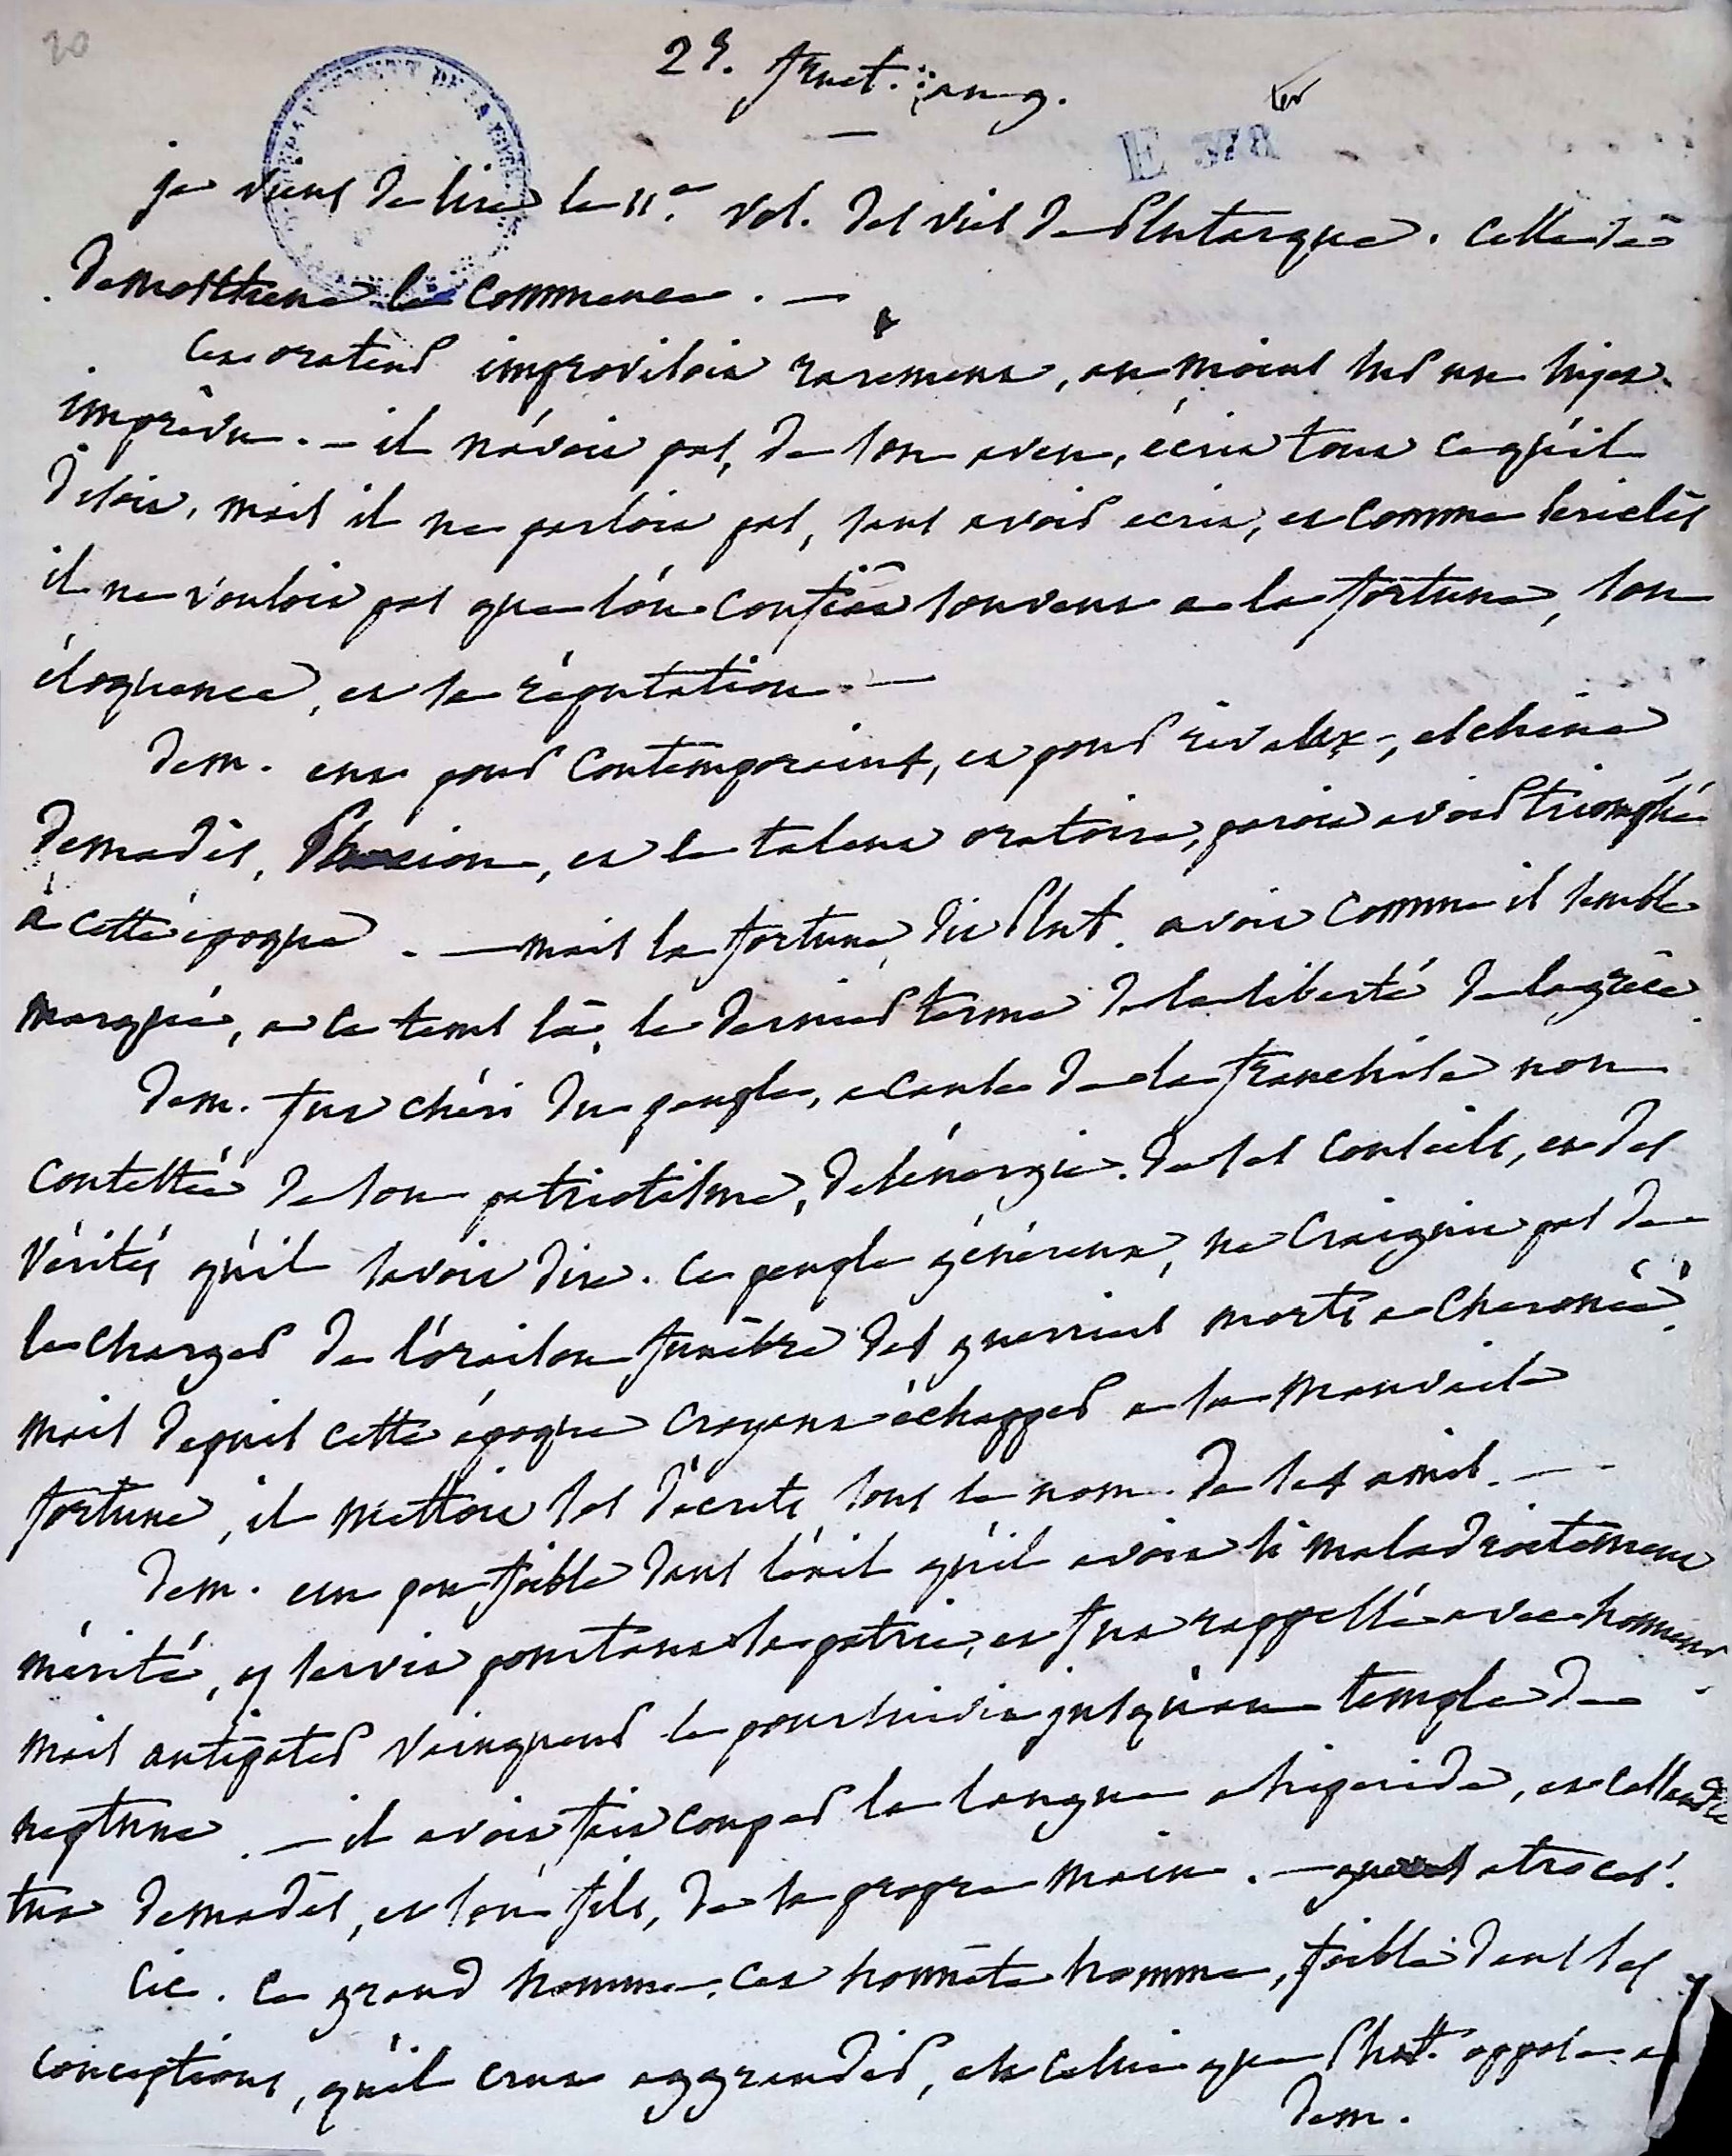 20
29. fruct. an 9.
ter
E 378
je viens de lire le 11e vol. des vies de Plutarque. celle de
demosthene le commence. —
Cet orateur improvisoit rarement, au moins sur un sujet
imprévu. — il n'avoit pas, de son aveu, écrit tout ce qu'il
disoit, mais il ne parloit pas, sans avoir ecrit, et comme Periclès
il ne vouloit pas que l'on confiât souvent a la fortune, son
éloquence, et sa réputation. —
dem. eut pour contemporains, et pour rivaux, eschine
demadès, Phocion, et le talent oratoire, paroit avoir triomphé
à cette époque. — mais la fortune, dit Plut. avoit comme il semble
marqué, a ce tems là, le dernier terme de la liberté de la grèce.
dem. fut chéri du peuple, a cause de la franchise non
contestée de son patriotisme, de l'énergie de ses conseils, et des
vérités qu'il savoit dire. Ce peuple généreux, ne craignit pas de
le charger de l'oraison funèbre des guerriers morts a cheronée,
mais depuis cette époque croyant échapper a sa mauvaise
fortune, il mettoit ses décrets sous le nom de ses amis. —
dem. un peu foible dans l'exil qu'il avoit si maladroitement
mérité, y servit pourtant sa patrie, et fut rappellé avec honneur.
mais antipater vainqueur le poursuivit jusqu'au temple de
neptune. — il avoit fait couper la langue a hiperide, et cassandre
tua demadès, et son fils, de sa propre main. — atroces!
Cic. ce grand homme, cet honnête homme, foible dans ses
conceptions, qu'il crut aggrandir, est celui que Plut. oppose a
dem.